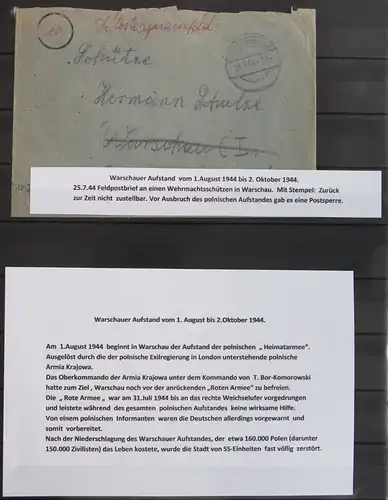 Schütze
Hermann Schulze
Warschau C 1
Warschauer Aufstand vom 1.August 1944 bis 2. Oktober 1944.
25.7.44 Feldpostbrief an einen Wehrmachtsschützen in Warschau. Mit Stempel: Zurück
zur Zeit nicht zustellbar. Vor Ausbruch des polnischen Aufstandes gab es eine Postsperre.
Warschauer Aufstand vom 1. August bis 2.Oktober 1944.
Am 1.August 1944 beginnt in Warschau der Aufstand der polnischen „ Heimatarmee“.
Ausgelöst durch die der polnische Exilregierung in London unterstehende polnische
Armia Krajowa.
Das Oberkommando der Armia Krajowa unter dem Kommando von T. Bor-Komorowski
hatte zum Ziel , Warschau noch vor der anrückenden „Roten Armee“ zu befreien.
Die „ Rote Armee „ war am 31.Juli 1944 bis an das rechte Weichselufer vorgedrungen
und leistete während des gesamten polnischen Aufstandes keine wirksame Hilfe.
Von einem polnischen Informanten waren die Deutschen allerdings vorgewarnt und
somit vorbereitet.
Nach der Niederschlagung des Warschauer Aufstandes, der etwa 160.000 Polen (darunter
150.000 Zivilisten) das Leben kostete, wurde die Stadt von SS-Einheiten fast völlig zerstört.